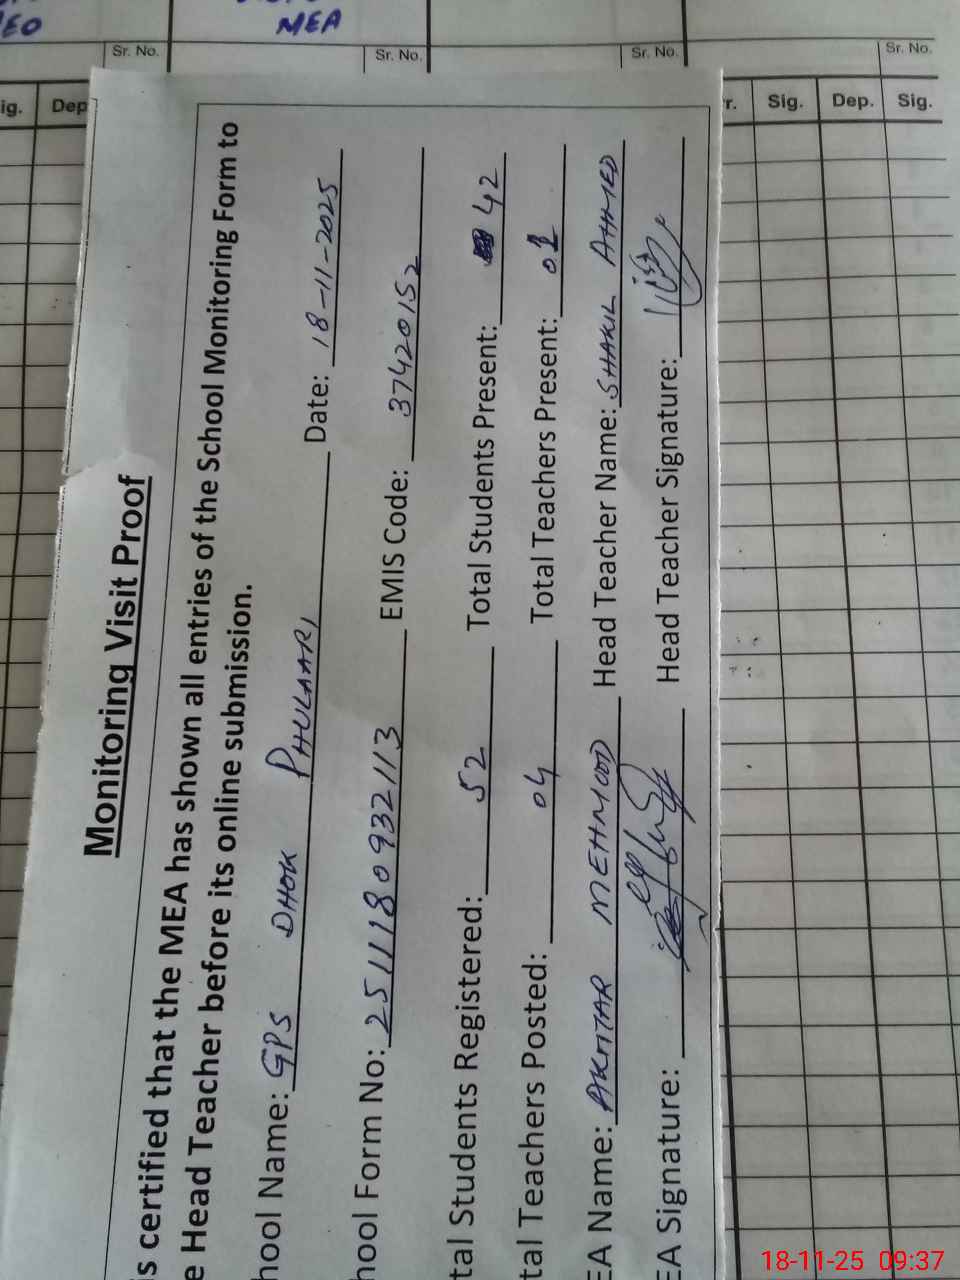 EO
MEA
Sr. No.
Sr. No.
Sr. No.
Sr. No.
ig.
Dep
r.
Sig.
Dep.
Sig.
Monitoring Visit Proof
is certified that the MEA has shown all entries of the School Monitoring Form to
e Head Teacher before its online submission.
hool Name: GPS DHOK PHULAARI Date: 18-11-2025
hool Form No: 2511180932113 EMIS Code: 37420152
tal Students Registered: 52 Total Students Present: 42
tal Teachers Posted: 04 Total Teachers Present: 01
EA Name: AKHTAR MEHMOOD Head Teacher Name: SHAKIL AHMED
EA Signature: Head Teacher Signature:
18-11-25 09:37